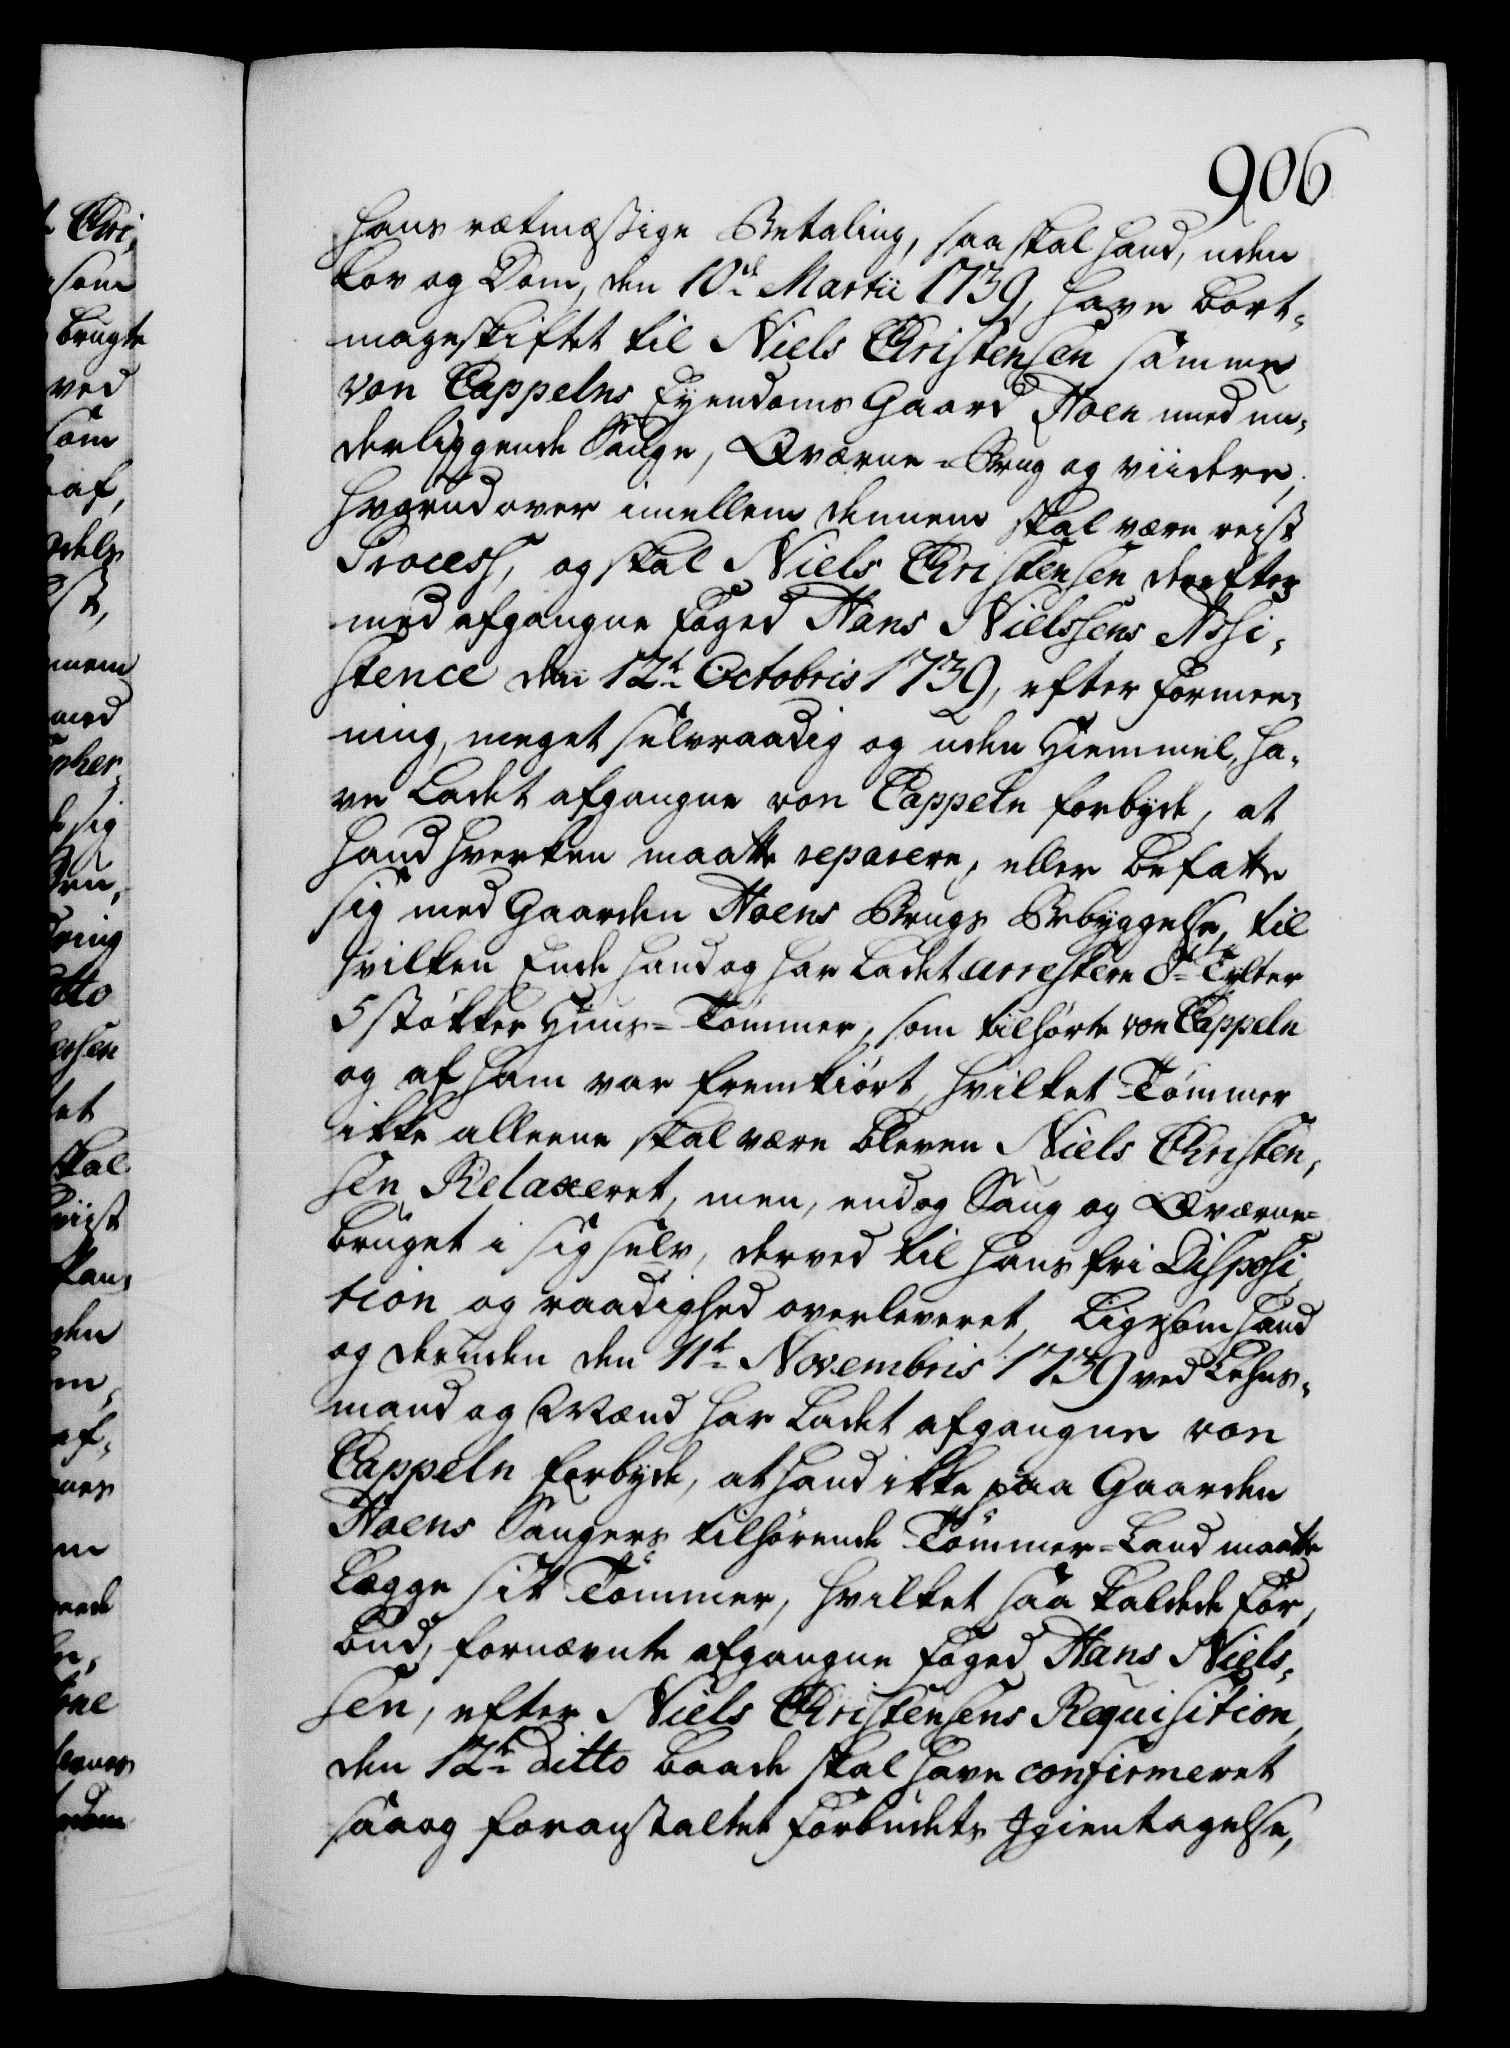 906
hans rætmæssige Betaling, saa skal hand, uden
Lov og Dom, den 10de Martii 1739, have bort-
mageskiftet til Niels Christensen samme
von Cappelns Eyendoms Gaard Hoen med un-
derliggende Sauge, Qværne-Brug og viidere,
hvorudover imellem dennem skal være reist
Process, og skal Niels Christensen derefter
med afgangne Foged Hans Nielssens Assi-
stence den 12te Octobris 1739, efter Formee-
ning, meget selvraadig og uden Hiemmel, ha-
ve Ladet afgangne von Cappeln forbyde, at
hand hverken maatte reparere, eller befatte
sig med Gaarden Hoens Brugs Bebyggelse, til
hvilken Ende hand og har Ladet arrestere 8te Tylter
5 støkker Huus-Tømmer, som tilhørte von Cappeln
og af ham var fremkiørt, hvilket Tømmer
ikke alleene skal være bleven Niels Christen-
sen Relaxeret, men, endog Saug og Qværne-
bruget i sig selv, derved til hans fri Disposi-
tion og raadighed overleveret, Ligesom hand
og desuden den 11te Novembris 1739 ved Lehns-
mand og Mænd har Ladet afgangne von
Cappeln forbyde, at hand ikke paa Gaarden
Hoens Saugers tilhørende Tømmer-Land maatte
Legge sit Tømmer, hvilket saa kaldede For-
bud, fornævnte afgangne Foged Hans Niels-
sen, efter Niels Christensens Requisition,
den 12te ditto baade skal have confirmeret
saa og foranstaltet Forbudets Igientagelse,